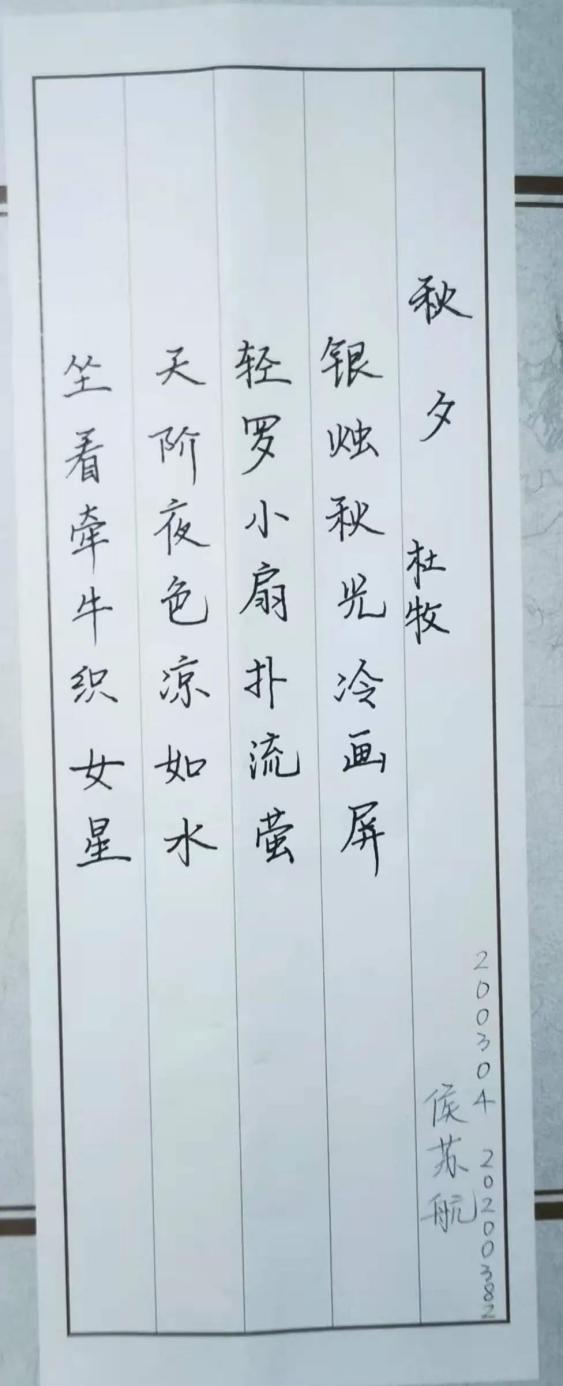 秋夕 杜牧
银烛秋光冷画屏
轻罗小扇扑流萤
天阶夜色凉如水
坐看牵牛织女星
200304 20200382
侯苏航